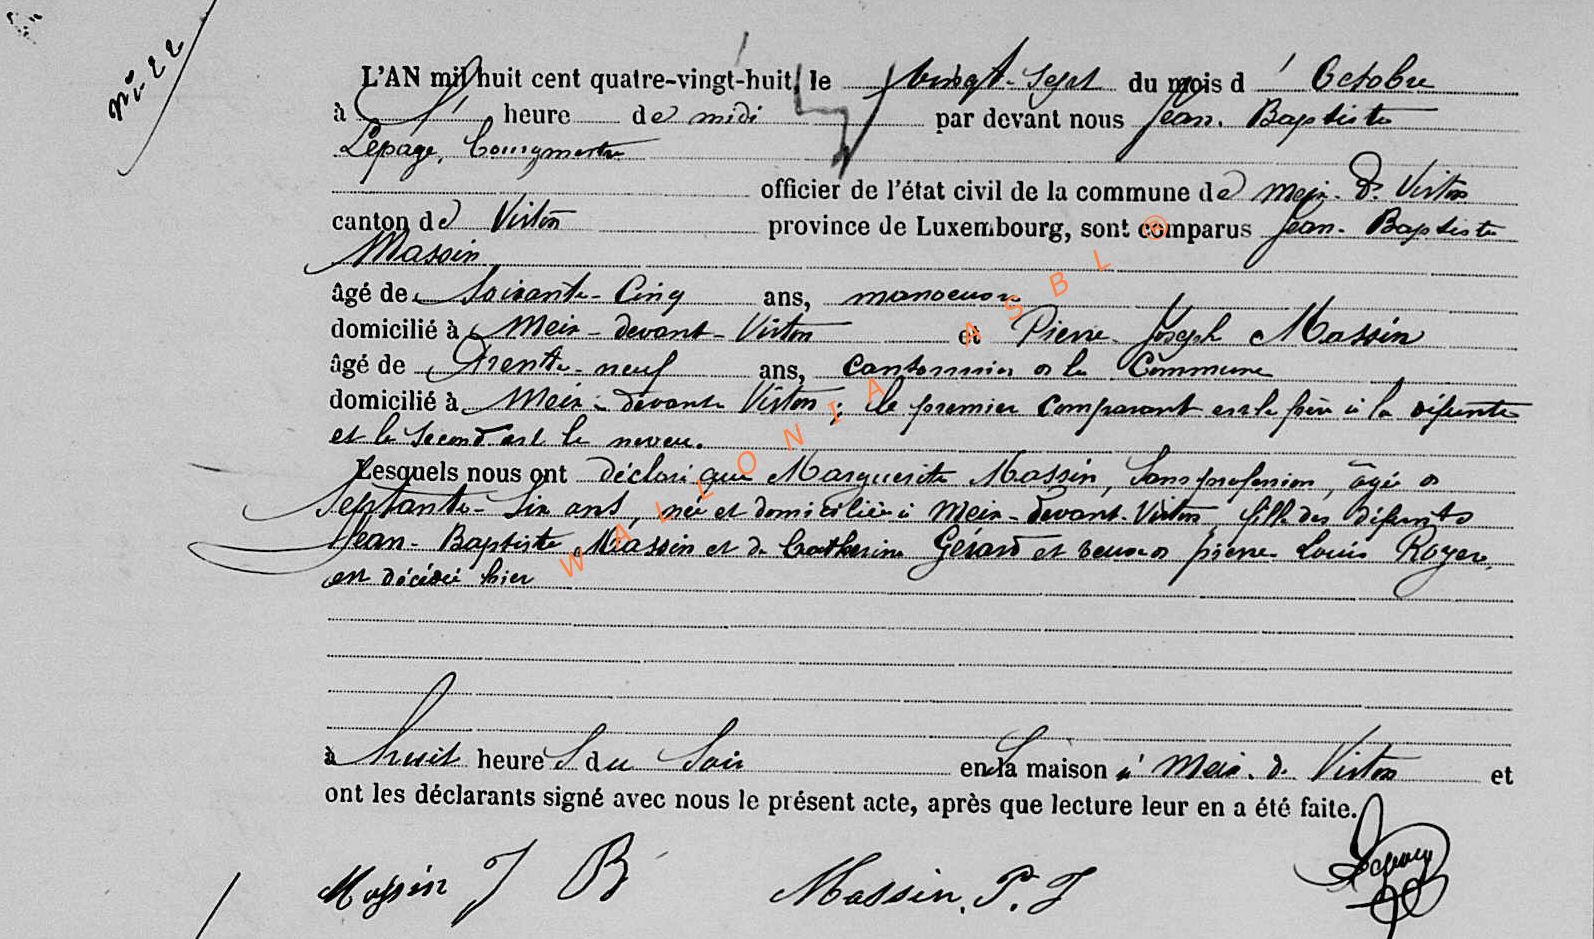 n° 22
L'AN mil huit cent quatre-vingt-huit, le vingt-sept du mois d' Octobre
à heure de midi par devant nous Jean-Baptiste
Lepage, Bourgmestre
officier de l'état civil de la commune de Meix-d.-Virton
canton de Virton province de Luxembourg, sont comparus Jean-Baptiste
Massin
âgé de Soixante-Cinq ans, manoeuvre
domicilié à Meix-devant-Virton et Pierre Joseph Massin
âgé de Trente-neuf ans, cantonnier de la Commune
domicilié à Meix-devant Virton ; le premier comparant est le frère à la défunte
et le second est le neveu.
Lesquels nous ont déclaré que Marguerite Massin, Sans profession, âgée de
Septante-Six ans, née et domiciliée à Meix-devant-Virton, fille des défunts
Jean-Baptiste Massin et de Catherine Gérard et veuve de pierre Louis Royer,
est décédée hier
à huit heures du Soir en sa maison à Meix-d. Virton et
ont les déclarants signé avec nous le présent acte, après que lecture leur en a été faite.
Massin J B Massin. P. J Lepage
WALLONIA ASBL ®